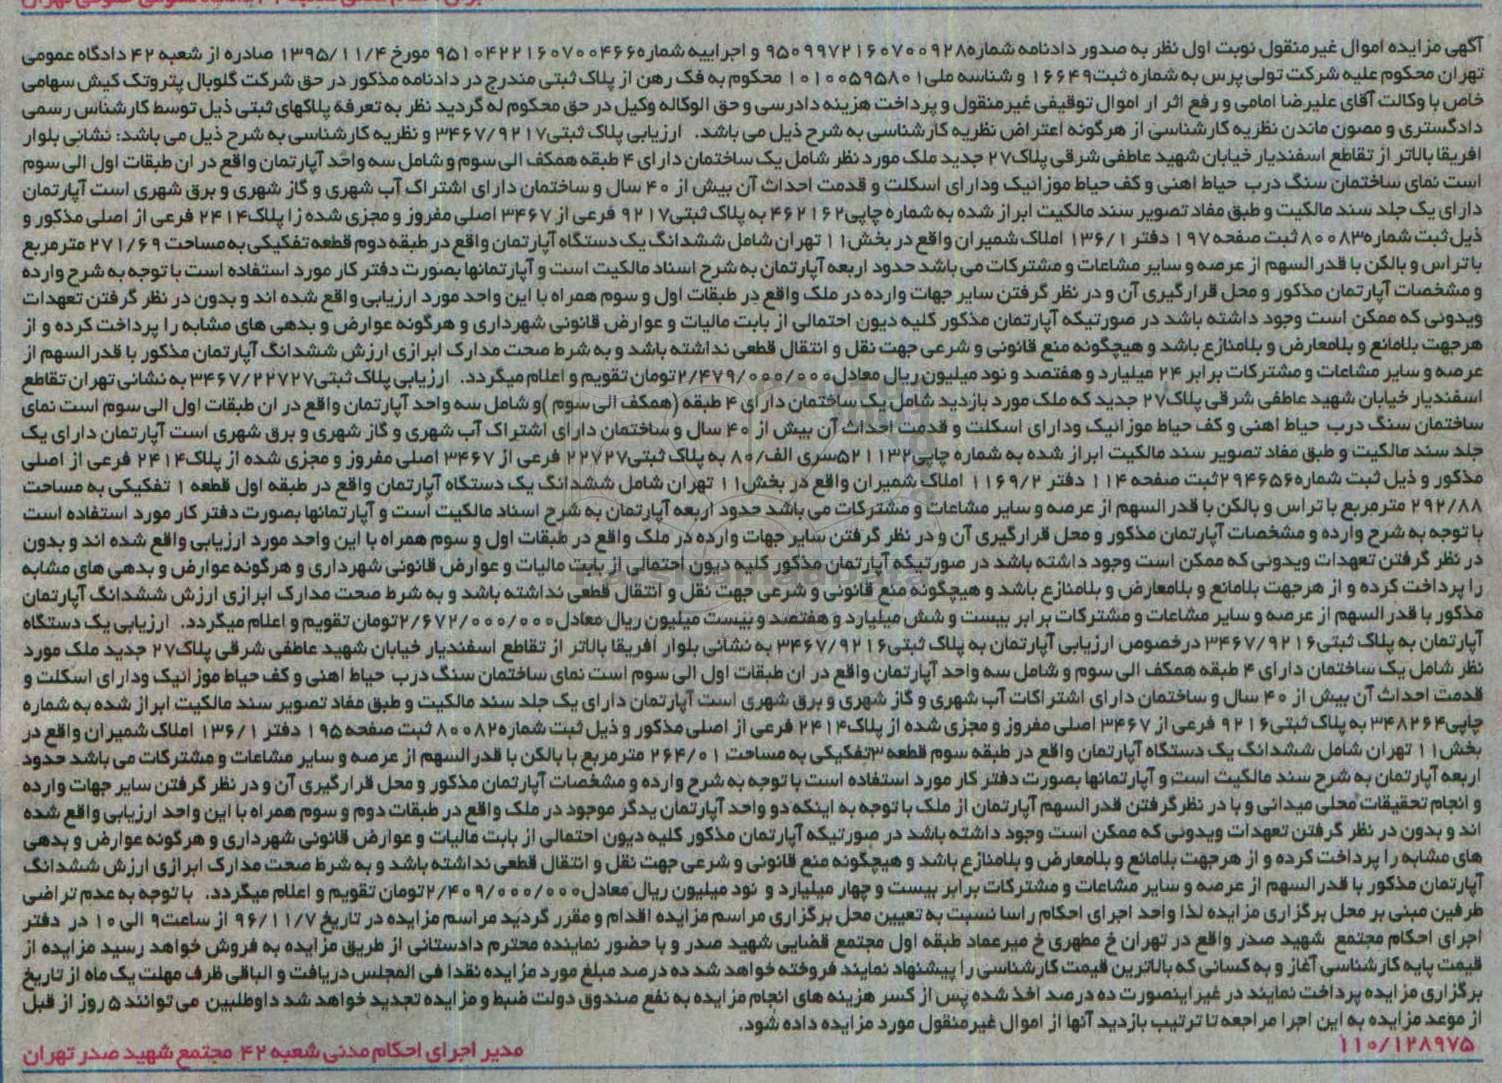 آگهی مزایده اموال غیرمنقول نوبت اول نظر به صدور دادنامه شماره۹۵۰۹۹۷۲۱۶۰۷۰۰۹۲۸ و اجراییه شماره۹۵۱۰۴۲۲۱۶۰۷۰۰۴۶۶ مورخ ۱۳۹۵/۱۱/۴ صادره از شعبه ۴۲ دادگاه عمومی
تهران محکوم علیه شرکت تولی پرس به شماره ثبت۱۶۶۴۹ و شناسه ملی۱۰۱۰۰۵۹۵۸۰۱ محکوم به فک رهن از پلاک ثبتی مندرج در دادنامه مذکور در حق شرکت گلوبال پتروتک کیش سهامی
خاص با وکالت آقای علیرضا امامی و رفع اثر ار اموال توقیفی غیرمنقول و پرداخت هزینه دادرسی و حق الوکاله وکیل در حق محکوم له گردید نظر به تعرفه پلاکهای ثبتی ذیل توسط کارشناس رسمی
دادگستری و مصون ماندن نظریه کارشناسی از هرگونه اعتراض نظریه کارشناسی به شرح ذیل می باشد. ارزیابی پلاک ثبتی۳۴۶۷/۹۲۱۷ و نظریه کارشناسی به شرح ذیل می باشد: نشانی بلوار
افریقا بالاتر از تقاطع اسفندیار خیابان شهید عاطفی شرقی پلاک۲۷ جدید ملک مورد نظر شامل یک ساختمان دارای ۴ طبقه همکف الی سوم و شامل سه واحد آپارتمان واقع در ان طبقات اول الی سوم
است نمای ساختمان سنگ درب حیاط اهنی و کف حیاط موزانیک ودارای اسکلت و قدمت احداث آن بیش از ۴۰ سال و ساختمان دارای اشتراک آب شهری و گاز شهری و برق شهری است آپارتمان
دارای یک جلد سند مالکیت و طبق مفاد تصویر سند مالکیت ابراز شده به شماره چاپی۴۶۲۱۶۲ به پلاک ثبتی۹۲۱۷ فرعی از ۳۴۶۷ اصلی مفروز و مجزی شده زا پلاک۲۴۱۴ فرعی از اصلی مذکور و
ذیل ثبت شماره۸۰۰۸۳ ثبت صفحه ۱۹۷ دفتر ۱۳۶/۱ املاک شمیران واقع در بخش۱۱ تهران شامل ششدانگ یک دستگاه آپارتمان واقع در طبقه دوم قطعه تفکیکی به مساحت ۲۷۱/۶۹ مترمربع
با تراس و بالکن با قدرالسهم از عرصه و سایر مشاعات و مشترکات می باشد حدود اربعه آپارتمان به شرح اسناد مالکیت است و آپارتمانها بصورت دفتر کار مورد استفاده است با توجه به شرح وارده
و مشخصات آپارتمان مذکور و محل قرارگیری آن و در نظر گرفتن سایر جهات وارده در ملک واقع در طبقات اول و سوم همراه با این واحد مورد ارزیابی واقع شده اند و بدون در نظر گرفتن تعهدات
ویدونی که ممکن است وجود داشته باشد در صورتیکه آپارتمان مذکور کلیه دیون احتمالی از بابت مالیات و عوارض قانونی شهرداری و هرگونه عوارض و بدهی های مشابه را پرداخت کرده و از
هرجهت بلامانع و بلامعارض و بلامنازع باشد و هیچگونه منع قانونی و شرعی جهت نقل و انتقال قطعی نداشته باشد و به شرط صحت مدارک ابرازی ارزش ششدانگ آپارتمان مذکور با قدرالسهم از
عرصه و سایر مشاعات و مشترکات برابر ۲۴ میلیارد و هفتصد و نود میلیون ریال معادل۲/۴۷۹/۰۰۰/۰۰۰تومان تقویم و اعلام میگردد. ارزیابی پلاک ثبتی۳۴۶۷/۲۲۷۲۷ به نشانی تهران تقاطع
اسفندیار خیابان شهید عاطفی شرقی پلاک۲۷ جدید که ملک مورد بازدید شامل یک ساختمان دارای ۴ طبقه (همکف الی سوم )و شامل سه واحد آپارتمان واقع در ان طبقات اول الی سوم است نمای
ساختمان سنگ درب حیاط اهنی و کف حیاط موزانیک ودارای اسکلت و قدمت احداث آن بیش از ۴۰ سال و ساختمان دارای اشتراک آب شهری و گاز شهری و برق شهری است آپارتمان دارای یک
جلد سند مالکیت و طبق مفاد تصویر سند مالکیت ابراز شده به شماره چاپی۵۲۱۱۳۲سری الف/۸۰ به پلاک ثبتی۲۲۷۲۷ فرعی از ۳۴۶۷ اصلی مفروز و مجزی شده از پلاک۲۴۱۴ فرعی از اصلی
مذکور و ذیل ثبت شماره۲۹۴۶۵۶ثبت صفحه ۱۱۴ دفتر ۱۱۶۹/۲ املاک شمیران واقع در بخش۱۱ تهران شامل ششدانگ یک دستگاه آپارتمان واقع در طبقه اول قطعه ۱ تفکیکی به مساحت
۲۹۲/۸۸ مترمربع با تراس و بالکن با قدرالسهم از عرصه و سایر مشاعات و مشترکات می باشد حدود اربعه آپارتمان به شرح اسناد مالکیت است و آپارتمانها بصورت دفتر کار مورد استفاده است
با توجه به شرح وارده و مشخصات آپارتمان مذکور و محل قرارگیری آن و در نظر گرفتن سایر جهات وارده در ملک واقع در طبقات اول و سوم همراه با این واحد مورد ارزیابی واقع شده اند و بدون
در نظر گرفتن تعهدات ویدونی که ممکن است وجود داشته باشد در صورتیکه آپارتمان مذکور کلیه دیون احتمالی از بابت مالیات و عوارض قانونی شهرداری و هرگونه عوارض و بدهی های مشابه
را پرداخت کرده و از هرجهت بلامانع و بلامعارض و بلامنازع باشد و هیچگونه منع قانونی و شرعی جهت نقل و انتقال قطعی نداشته باشد و به شرط صحت مدارک ابرازی ارزش ششدانگ آپارتمان
مذکور با قدرالسهم از عرصه و سایر مشاعات و مشترکات برابر بیست و شش میلیارد و هفتصد و بیست میلیون ریال معادل۲/۶۷۲/۰۰۰/۰۰۰تومان تقویم و اعلام میگردد. ارزیابی یک دستگاه
آپارتمان به پلاک ثبتی۳۴۶۷/۹۲۱۶ درخصوص ارزیابی آپارتمان به پلاک ثبتی۳۴۶۷/۹۲۱۶ به نشانی بلوار افریقا بالاتر از تقاطع اسفندیار خیابان شهید عاطفی شرقی پلاک۲۷ جدید ملک مورد
نظر شامل یک ساختمان دارای ۴ طبقه همکف الی سوم و شامل سه واحد آپارتمان واقع در ان طبقات اول الی سوم است نمای ساختمان سنگ درب حیاط اهنی و کف حیاط موزانیک ودارای اسکلت و
قدمت احداث آن بیش از ۴۰ سال و ساختمان دارای اشتراکات آب شهری و گاز شهری و برق شهری است آپارتمان دارای یک جلد سند مالکیت و طبق مفاد تصویر سند مالکیت ابراز شده به شماره
چاپی۳۴۸۲۶۴ به پلاک ثبتی۹۲۱۶ فرعی از ۳۴۶۷ اصلی مفروز و مجزی شده از پلاک۲۴۱۴ فرعی از اصلی مذکور و ذیل ثبت شماره۸۰۰۸۲ ثبت صفحه ۱۹۵ دفتر ۱۳۶/۱ املاک شمیران واقع در
بخش۱۱ تهران شامل ششدانگ یک دستگاه آپارتمان واقع در طبقه سوم قطعه ۳تفکیکی به مساحت ۲۶۴/۰۱ مترمربع با بالکن با قدرالسهم از عرصه و سایر مشاعات و مشترکات می باشد حدود
اربعه آپارتمان به شرح سند مالکیت است و آپارتمانها بصورت دفتر کار مورد استفاده است با توجه به شرح وارده و مشخصات آپارتمان مذکور و محل قرارگیری آن و در نظر گرفتن سایر جهات وارده
و انجام تحقیقات محلی میدانی و با در نظرگرفتن قدرالسهم آپارتمان از ملک با توجه به اینکه دو واحد آپارتمان یدگر موجود در ملک واقع در طبقات دوم و سوم همراه با این واحد ارزیابی واقع شده
اند و بدون در نظر گرفتن تعهدات ویدونی که ممکن است وجود داشته باشد در صورتیکه آپارتمان مذکور کلیه دیون احتمالی از بابت مالیات و عوارض قانونی شهرداری و هرگونه عوارض و بدهی
های مشابه را پرداخت کرده و از هرجهت بلامانع و بلامعارض و بلامنازع باشد و هیچگونه منع قانونی و شرعی جهت نقل و انتقال قطعی نداشته باشد و به شرط صحت مدارک ابرازی ارزش ششدانگ
آپارتمان مذکور با قدرالسهم از عرصه و سایر مشاعات و مشترکات برابر بیست و چهار میلیارد و نود میلیون ریال معادل۲/۴۰۹/۰۰۰/۰۰۰تومان تقویم و اعلام میگردد. با توجه به عدم تراضی
طرفین مبنی بر محل برگزاری مزایده لذا واحد اجرای احکام راسا نسبت به تعیین محل برگزاری مراسم مزایده اقدام و مقرر گردید مراسم مزایده در تاریخ ۹۶/۱۱/۷ از ساعت۹ الی ۱۰ در دفتر
اجرای احکام مجتمع شهید صدر واقع در تهران خ مطهری خ میرعماد طبقه اول مجتمع قضایی شهید صدر و با حضور نماینده محترم دادستانی از طریق مزایده به فروش خواهد رسید مزایده از
قیمت پایه کارشناسی آغاز و به کسانی که بالاترین قیمت کارشناسی را پیشنهاد نمایند فروخته خواهد شد ده درصد مبلغ مورد مزایده نقدا فی المجلس دریافت و الباقی ظرف مهلت یک ماه از تاریخ
برگزاری مزایده پرداخت نمایند در غیر اینصورت ده درصد اخذ شده پس از کسر هزینه های انجام مزایده به نفع صندوق دولت ضبط و مزایده تجدید خواهد شد داوطلبین می توانند ۵ روز از قبل
از موعد مزایده به این اجرا مراجعه تا ترتیب بازدید آنها از اموال غیرمنقول مورد مزایده داده شود.
۱۱۰/۱۲۸۹۷۵
مدیر اجرای احکام مدنی شعبه ۴۲ مجتمع شهید صدر تهران